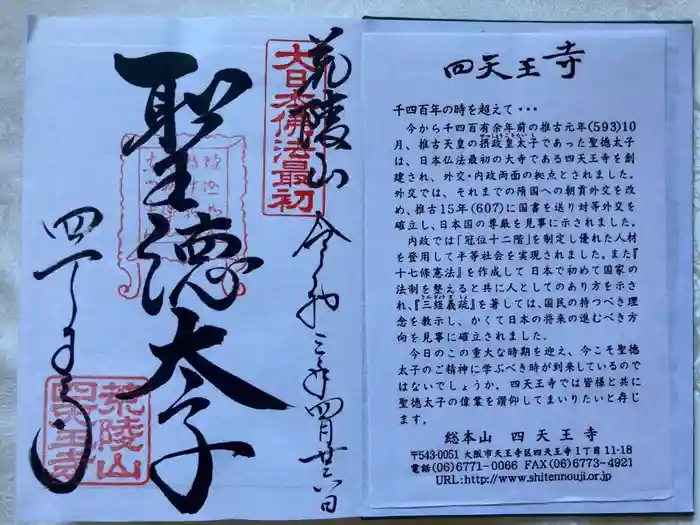 荒陵山 令和三年四月廿六日
大日本佛法最初
聖徳太子
四天王寺
荒陵山
四天王寺
四天王寺
千四百年の時を超えて・・・
今から千四百有余年前の推古元年(593)10
月、推古天皇の摂政皇太子であった聖徳太子
は、日本仏法最初の大寺である四天王寺を創
建され、外交・内政両面の拠点とされました。
外交では、それまでの隋国への朝貢外交を改
め、推古15年(607)に国書を送り対等外交を
確立し、日本国の尊厳を見事に示されました。
内政では「冠位十二階」を制定し優れた人材
を登用して平等社会を実現されました。また『
十七條憲法』を作成して 日本で初めて国家の
法制を整えると共に人としてのあり方を示さ
れ、『三経義疏』を著しては、国民の持つべき理
念を教示し、かくて日本の将来の進むべき方
向を見事に確立されました。
今日のこの重大な時期を迎え、今こそ聖徳
太子のご精神に学ぶべき時が到来しているので
はないでしょうか。四天王寺では皆様と共に
聖徳太子の偉業を讃仰してまいりたいと存じ
ます。
総本山 四天王寺
〒543-0051 大阪市天王寺区四天王寺1丁目11-18
電話(06)6771-0066 FAX(06)6773-4921
URL:http://www.shitennouji.or.jp